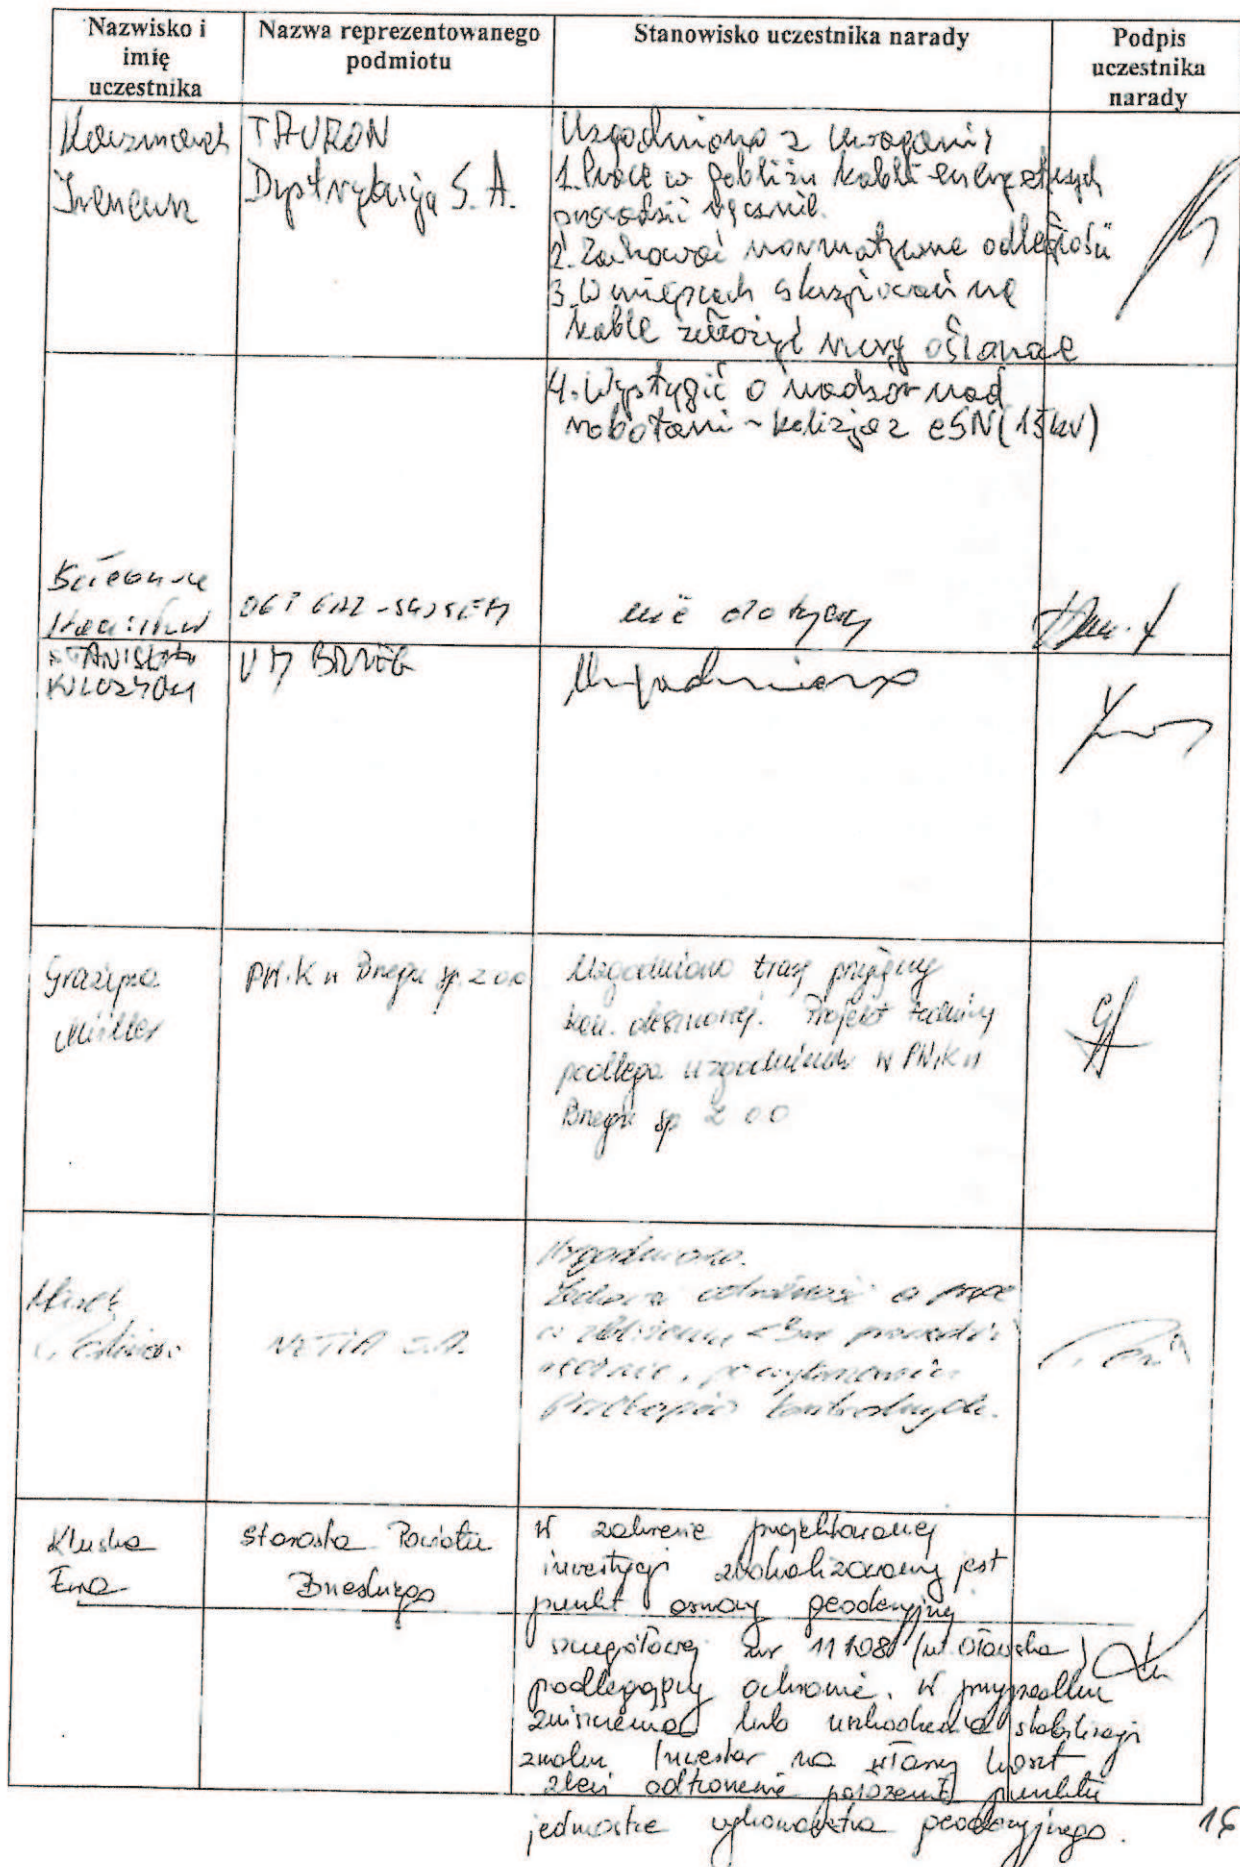 Nazwisko i
imię
uczestnika
Nazwa reprezentowanego
podmiotu
Stanowisko uczestnika narady
Podpis
uczestnika
narady
Kaczmarek
Ireneusz
TAURON
Dystrybucja S.A.
Uzgodniono z uwagami:
1. Prace w pobliżu kabli energetycznych
prowadzić ręcznie.
2. Zachować normatywne odległości
3. W miejscach skrzyżowań na
kable założyć rury osłonowe
4. Wystąpić o nadzór nad
robotami - kolizja z eSN (15kV)
nie dotyczy
STANISŁAW
UM BRZEG
Uzgodniono
Grażyna
Müller
PWiK w Brzegu sp. z o.o
Uzgodniono trasę
kan. deszczowej. Projekt
podlega uzgodnieniu w PWiK w
Brzegu sp z o o
Marek
NETIA S.A.
Uzgodniono.
w zbliżeniu <3m prowadzić
ręcznie, po wykonaniu
przekopów kontrolnych.
Kluska
Ewa
Starosta Powiatu
Brzeskiego
W zakresie projektowanej
inwestycji zlokalizowany jest
punkt osnowy geodezyjnej
szczegółowej nr 11108 (ul. Oławska)
podlegający ochronie. W przypadku
zniszczenia lub uszkodzenia stabilizacji
znaku Inwestor na własny koszt
zleci odtworzenie położenia punktu
jednostce wykonawstwa geodezyjnego.
16